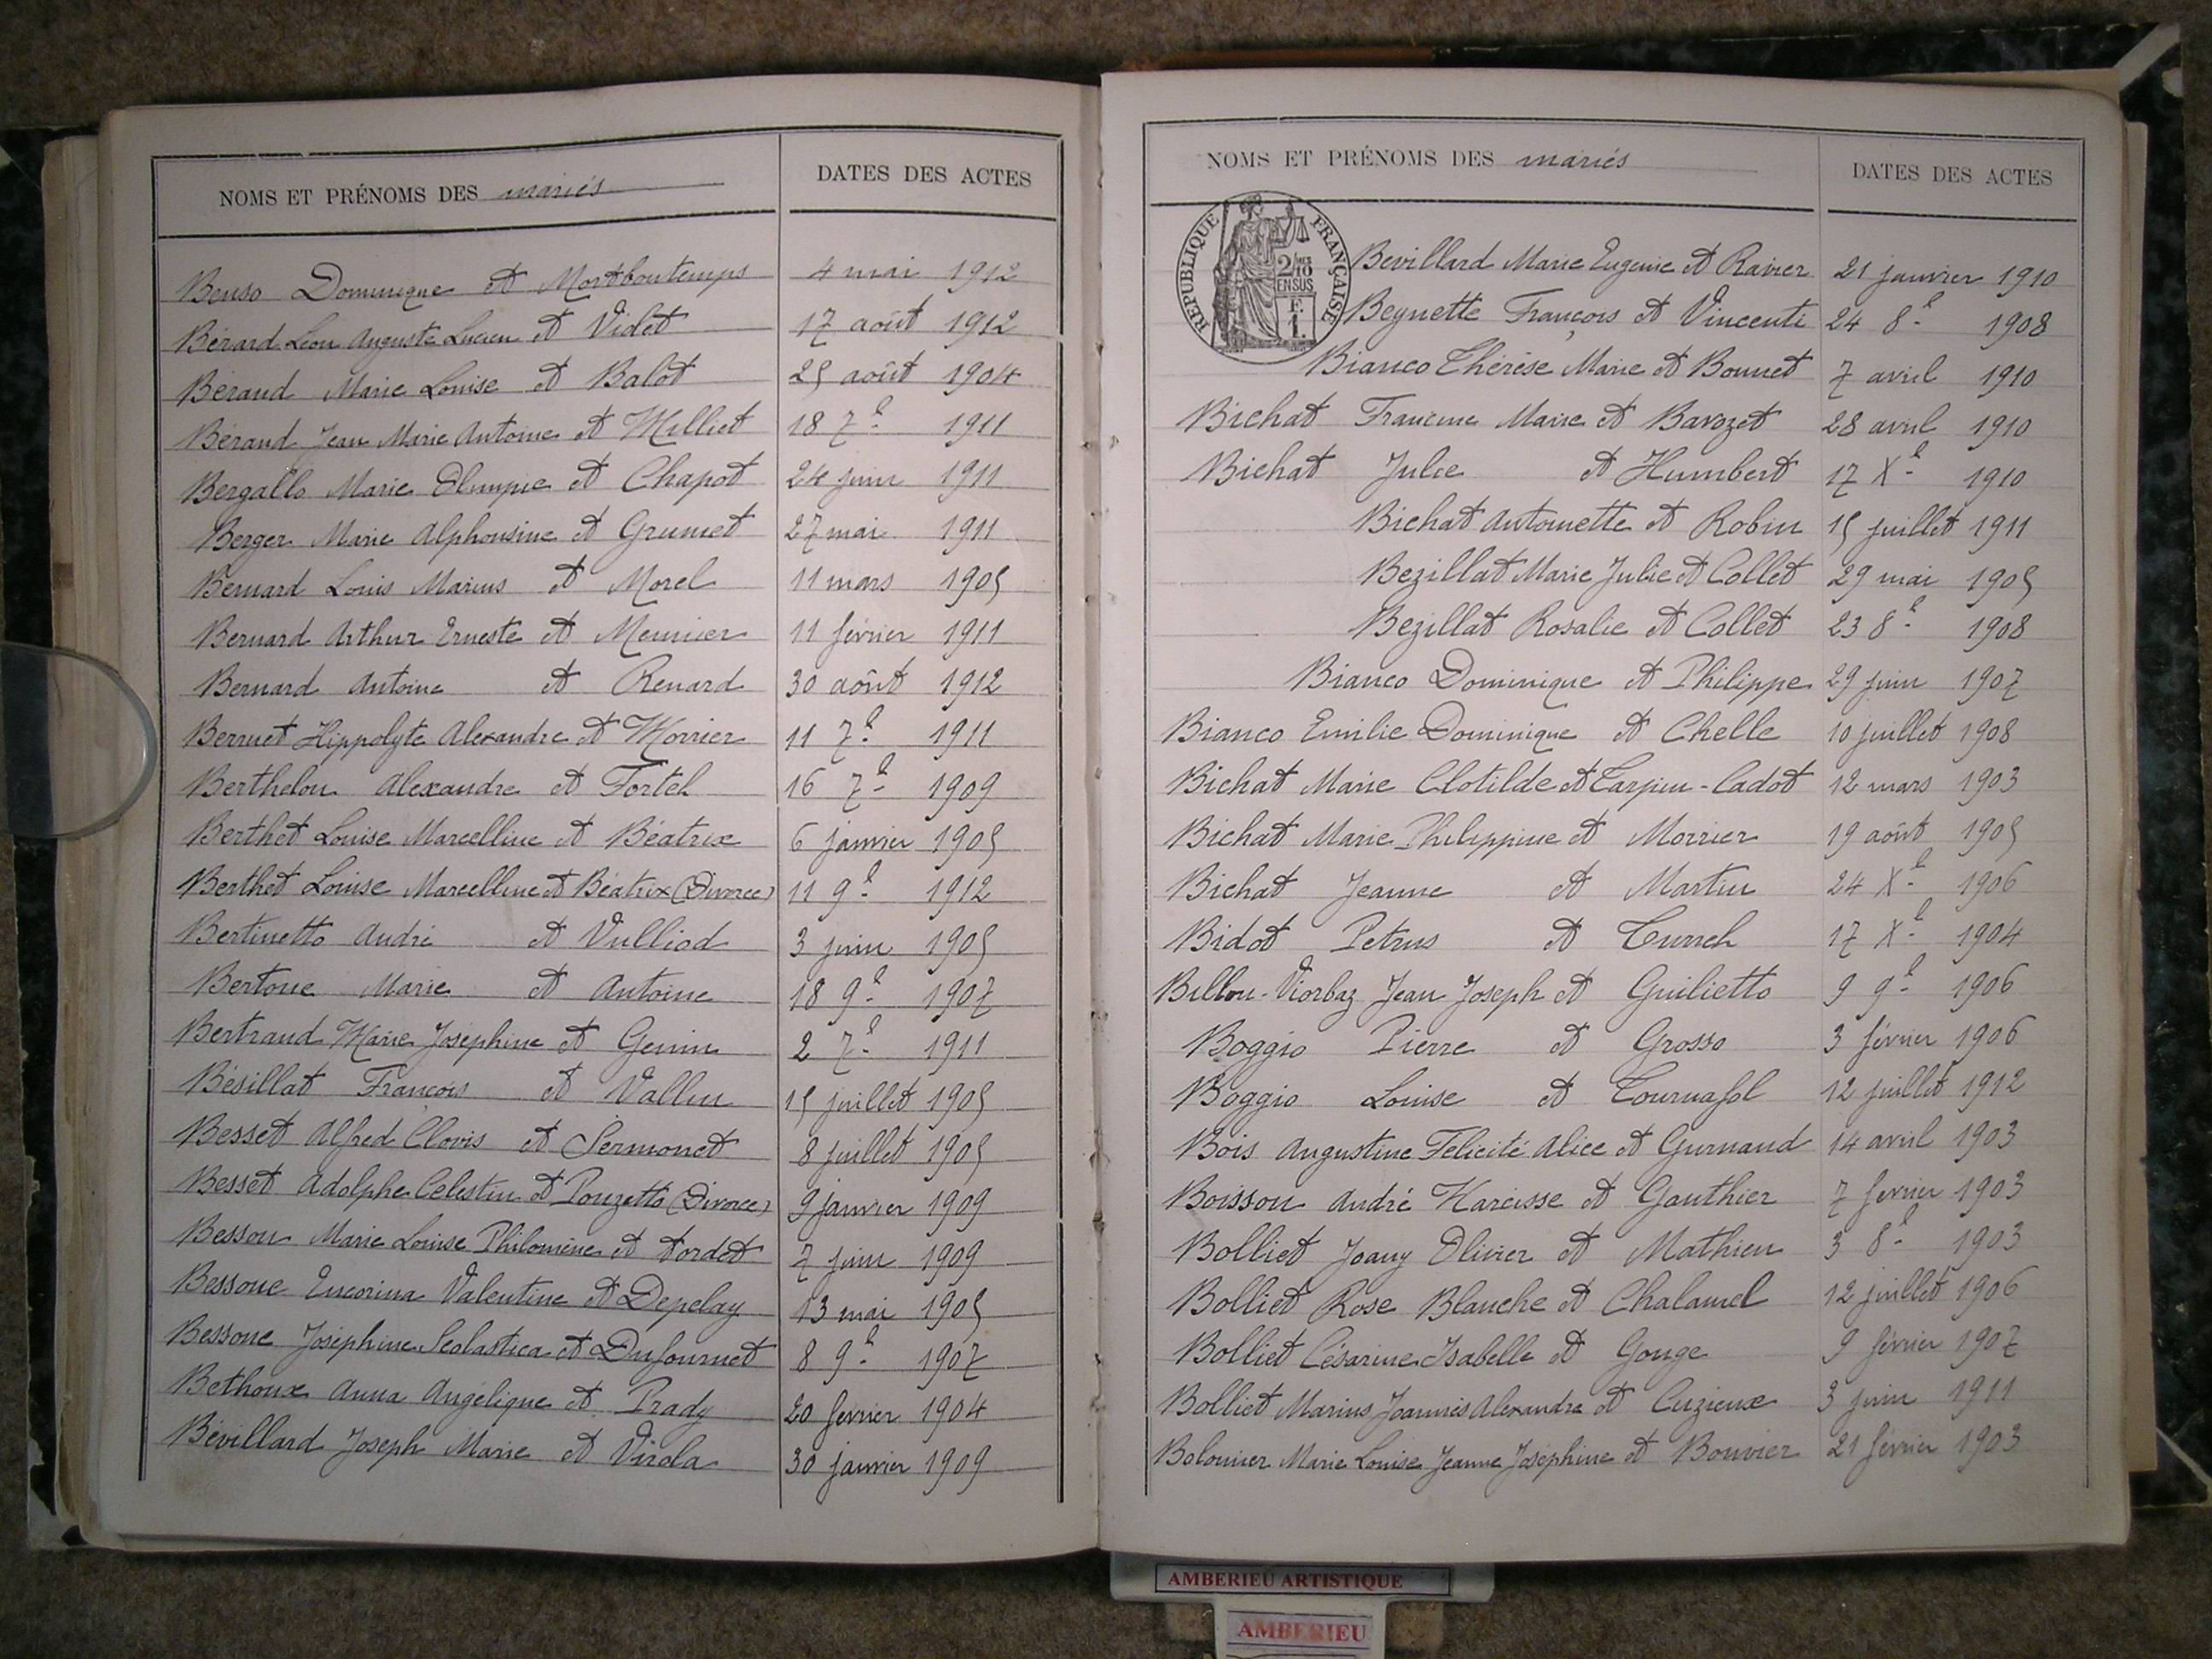 NOMS ET PRÉNOMS DES mariés DATES DES ACTES
Benso Dominique et Montboutemps 4 mai 1912
Bérard Léon Auguste Lucien et Videt 17 août 1912
Béraud Marie Louise et Balot 25 août 1904
Béraud Jean Marie Antoine et Milliet 18 7e 1911
Bergallo Marie Olimpie et Chapot 24 juin 1911
Berger Marie Alphonsine et Grumet 27 mai 1911
Bernard Louis Marius et Morel 11 mars 1905
Bernard Arthur Erneste et Meunier 11 février 1911
Bernard Antoine et Renard 30 août 1912
Berruet Hippolyte Alexandre et Morrier 11 7e 1911
Berthelon Alexandre et Fortel 16 7e 1909
Berthet Louise Marcelline et Béatrix 6 janvier 1905
Berthet Louise Marcelline et Béatrix (Divorce) 11 9e 1912
Bertinetto André et Vulliod 3 juin 1905
Bertone Marie et Antoine 18 9e 1907
Bertrand Marie Joséphine et Genin 2 7e 1911
Bésillat François et Vallin 15 juillet 1905
Besset Alfred Clovis et Sermonet 8 juillet 1905
Besset Adolphe Celestin et Pouzetto (Divorce) 9 janvier 1909
Besson Marie Louise Philomène et Tordet 7 juin 1909
Bessone Encorina Valentine et Depelay 13 mai 1905
Bessone Joséphine Scolastica et Dufournet 8 9e 1907
Bethoux Anna Angélique et Prady 20 fevrier 1904
Bévillard Joseph Marie et Virola 30 janvier 1909
NOMS ET PRÉNOMS DES mariés DATES DES ACTES
REPUBLIQUE FRANÇAISE
2/10 EN SUS
F. 1.
Bévillard Marie Eugenie et Ravier 21 janvier 1910
Beynette François et Vincenti 24 8e 1908
Bianco Thérèse Marie et Bonnet 7 avril 1910
Bichat Francine Marie et Bavozet 28 avril 1910
Bichat Julie et Humbert 17 Xe 1910
Bichat Antoinette et Robin 15 juillet 1911
Bezillat Marie Julie et Collet 29 mai 1905
Bezillat Rosalie et Collet 23 8e 1908
Bianco Dominique et Philippe 29 juin 1907
Bianco Emilie Dominique et Chelle 10 juillet 1908
Bichat Marie Clotilde et Tarpin-Cadot 12 mars 1903
Bichat Marie Philippine et Morrier 19 août 1905
Bichat Jeanne et Martin 24 Xe 1906
Bidot Petrus et Turrel 17 Xe 1904
Billon-Viorbaz Jean Joseph et Guilietto 9 9e 1906
Boggio Pierre et Grosso 3 février 1906
Boggio Louise et Tournafol 12 juillet 1912
Bois Augustine Félicité Alice et Gurnaud 14 avril 1903
Boisson André Narcisse et Gauthier 7 fevrier 1903
Bolliet Joany Olivier et Mathieu 3 8e 1903
Bolliet Rose Blanche et Chalamel 12 juillet 1906
Bolliet Césarine Isabelle et Gouge 9 février 1907
Bolliet Marius Joannès Alexandre et Cuzieux 3 juin 1911
Bolomier Marie Louise Jeanne Joséphine et Bouvier 21 février 1903
AMBERIEU ARTISTIQUE
AMBERIEU